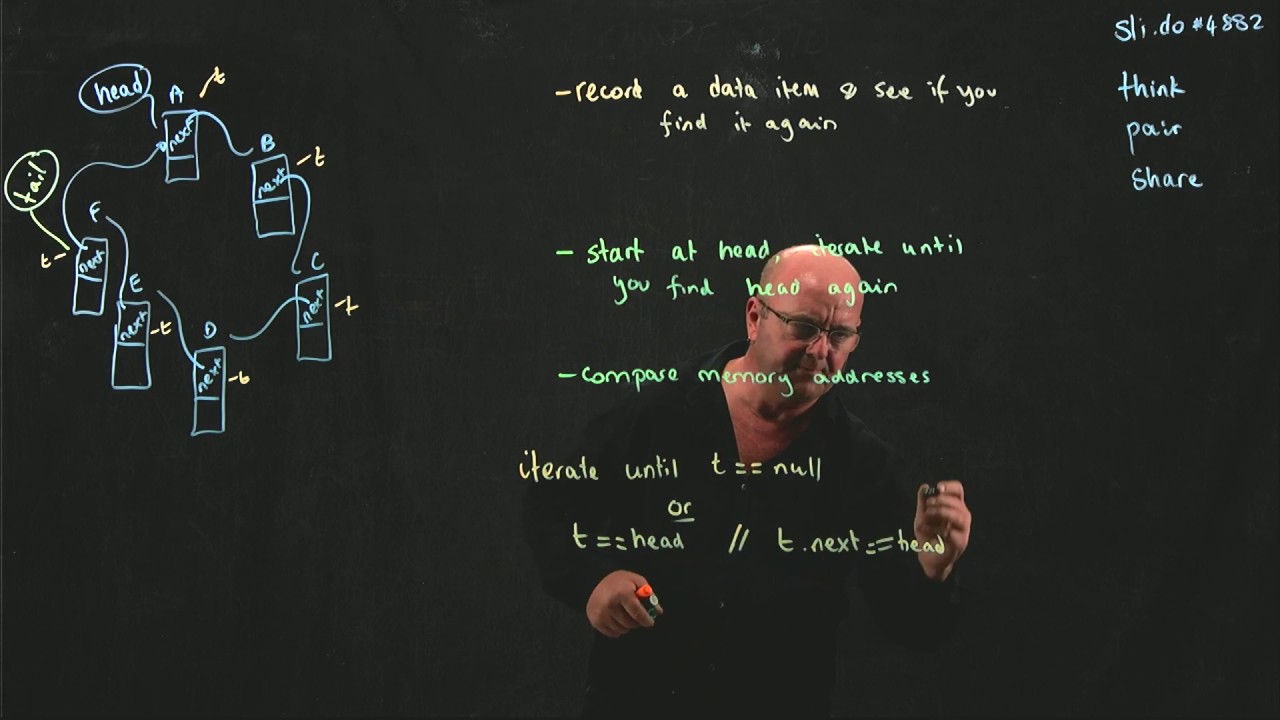 sli.do #4882
think
pair
share
head
A
t
next
B
t
next
C
t
next
D
t
next
E
t
next
F
t
next
tail
- record a data item & see if you
find it again
- start at head, iterate until
you find head again
- compare memory addresses
iterate until t == null
or
t == head // t.next == head